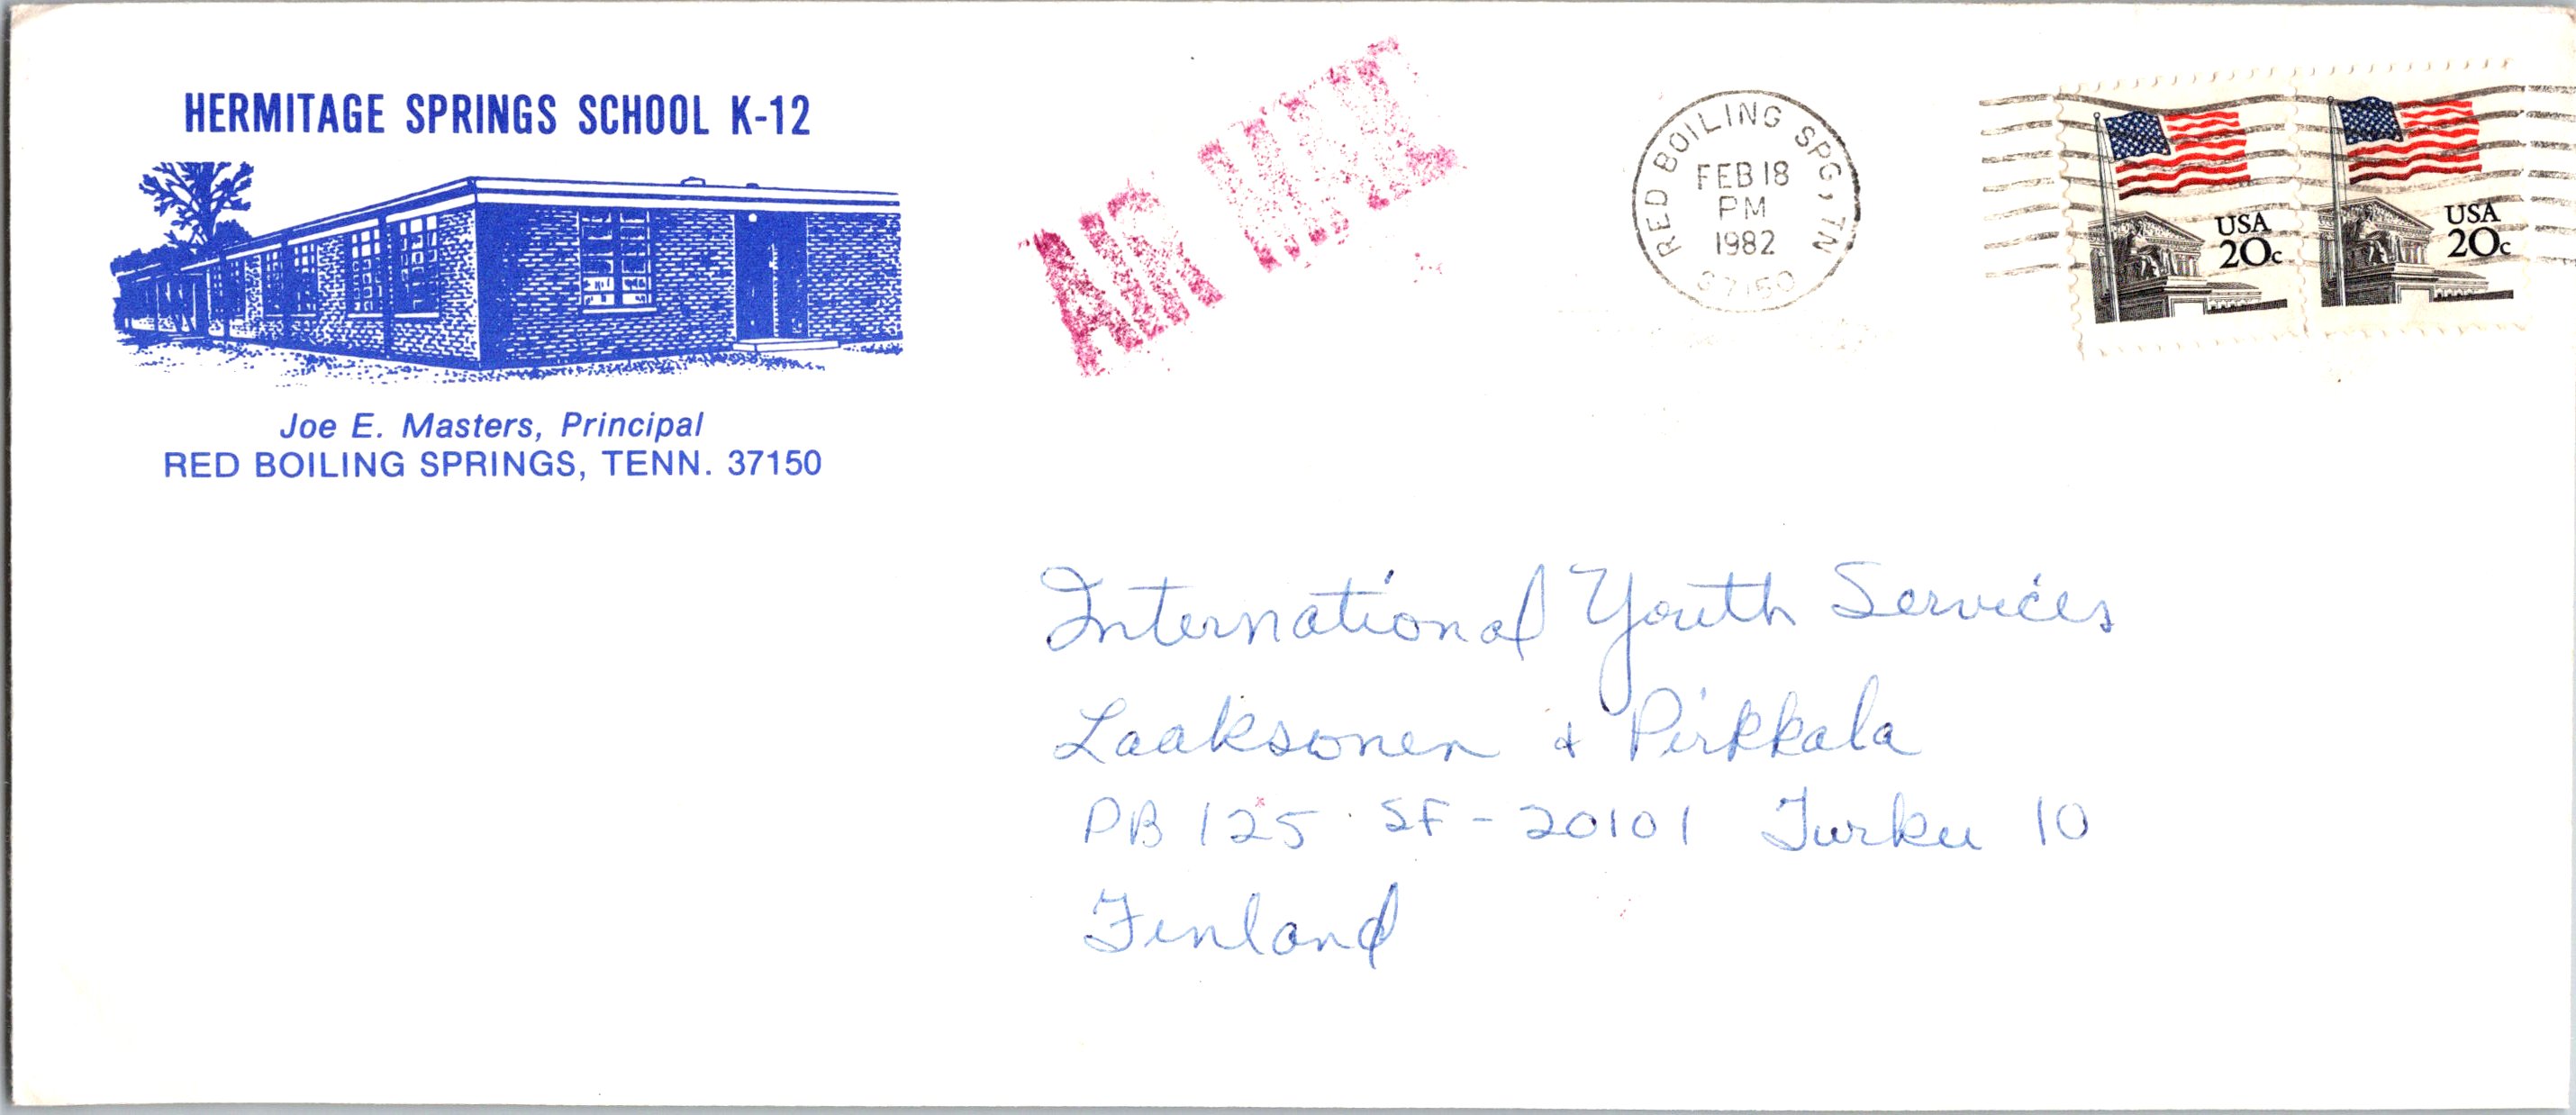 HERMITAGE SPRINGS SCHOOL K-12
Joe E. Masters, Principal
RED BOILING SPRINGS, TENN. 37150
AIR MAIL
RED BOILING SPG, TN
FEB 18
PM
1982
37150
USA
20c
USA
20c
International Youth Services
Laaksonen & Pirkkala
PB 125 SF-20101 Turku 10
Finland